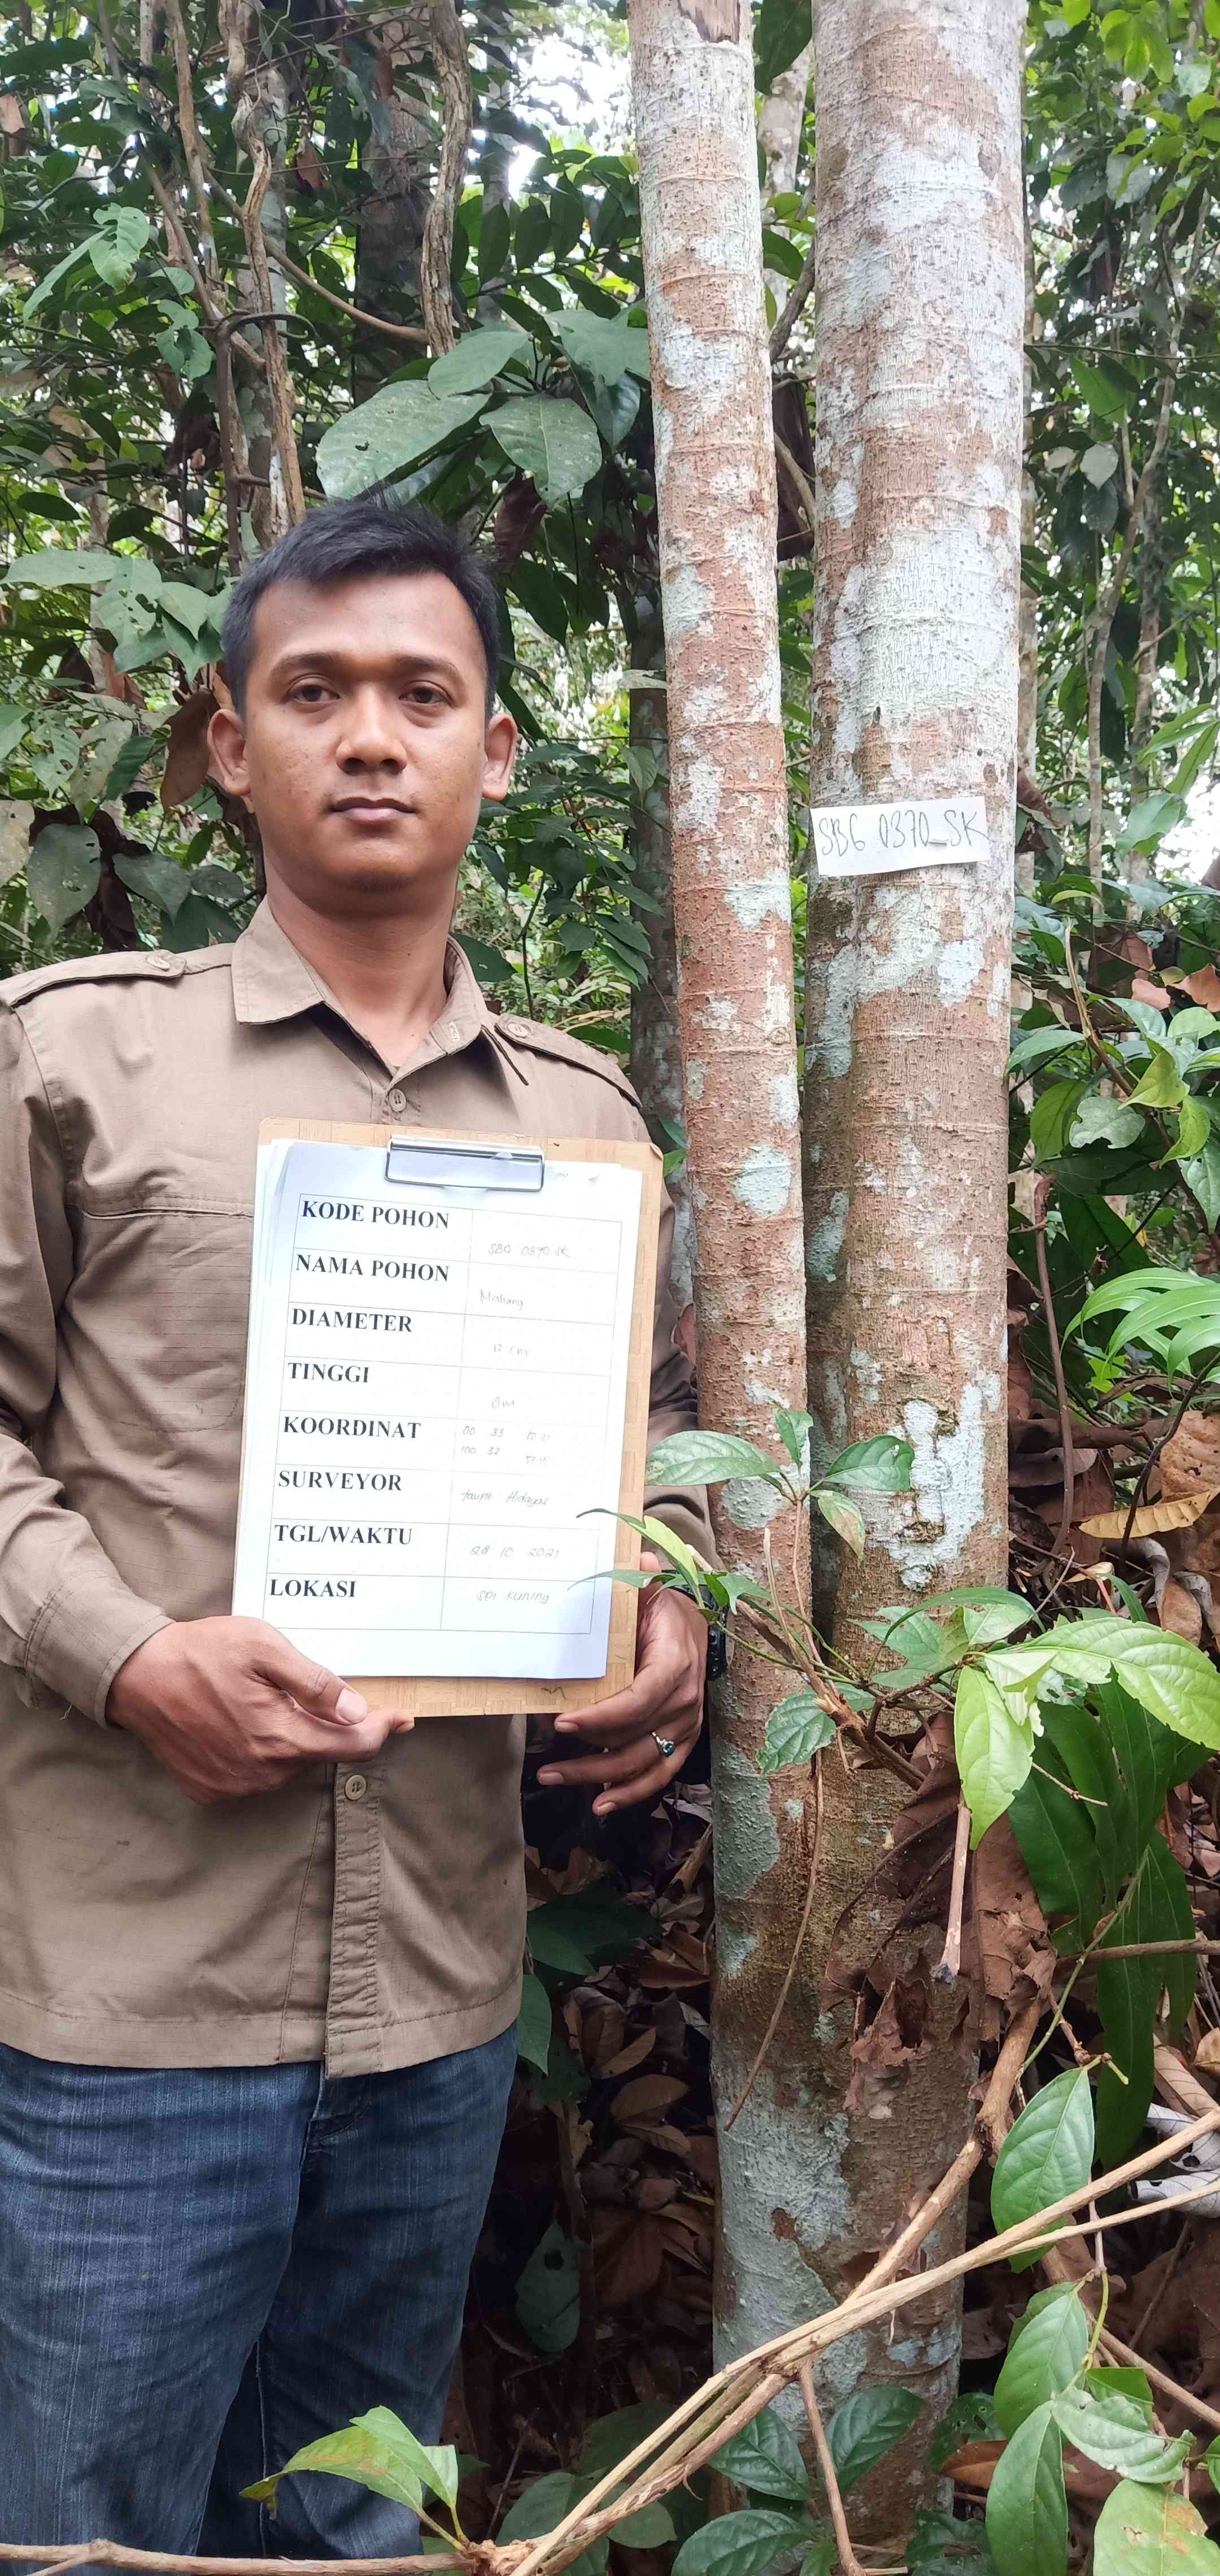 SBG 0370_SK
KODE POHON SBG 0370 SK
NAMA POHON Mahang
DIAMETER 12 cm
TINGGI
KOORDINAT 00 33
100 32
SURVEYOR Taufik Hidayat
TGL/WAKTU 28 10 2021
LOKASI Kuning